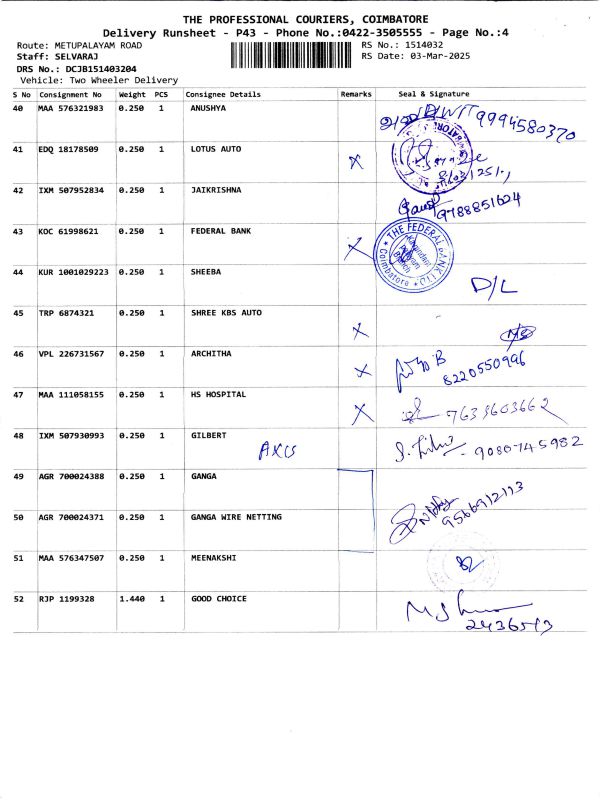 THE PROFESSIONAL COURIERS, COIMBATORE
Delivery Runsheet - P43 - Phone No.:0422-3505555 - Page No.:4
Route: METUPALAYAM ROAD RS No.: 1514032
Staff: SELVARAJ RS Date: 03-Mar-2025
DRS No.: DCJB151403204
Vehicle: Two Wheeler Delivery
S No Consignment No Weight PCS Consignee Details Remarks Seal & Signature
40 MAA 576321983 0.250 1 ANUSHYA 9994580370
41 EDQ 18178509 0.250 1 LOTUS AUTO X
42 IXM 507952834 0.250 1 JAIKRISHNA 9788851624
43 KOC 61998621 0.250 1 FEDERAL BANK X THE FEDERAL BANK LTD Coimbatore
44 KUR 1001029223 0.250 1 SHEEBA D/L
45 TRP 6874321 0.250 1 SHREE KBS AUTO X
46 VPL 226731567 0.250 1 ARCHITHA X 8220550996
47 MAA 111058155 0.250 1 HS HOSPITAL X 7633603662
48 IXM 507930993 0.250 1 GILBERT AXIS 9080745982
49 AGR 700024388 0.250 1 GANGA
50 AGR 700024371 0.250 1 GANGA WIRE NETTING 9566912113
51 MAA 576347507 0.250 1 MEENAKSHI
52 RJP 1199328 1.440 1 GOOD CHOICE
2436513